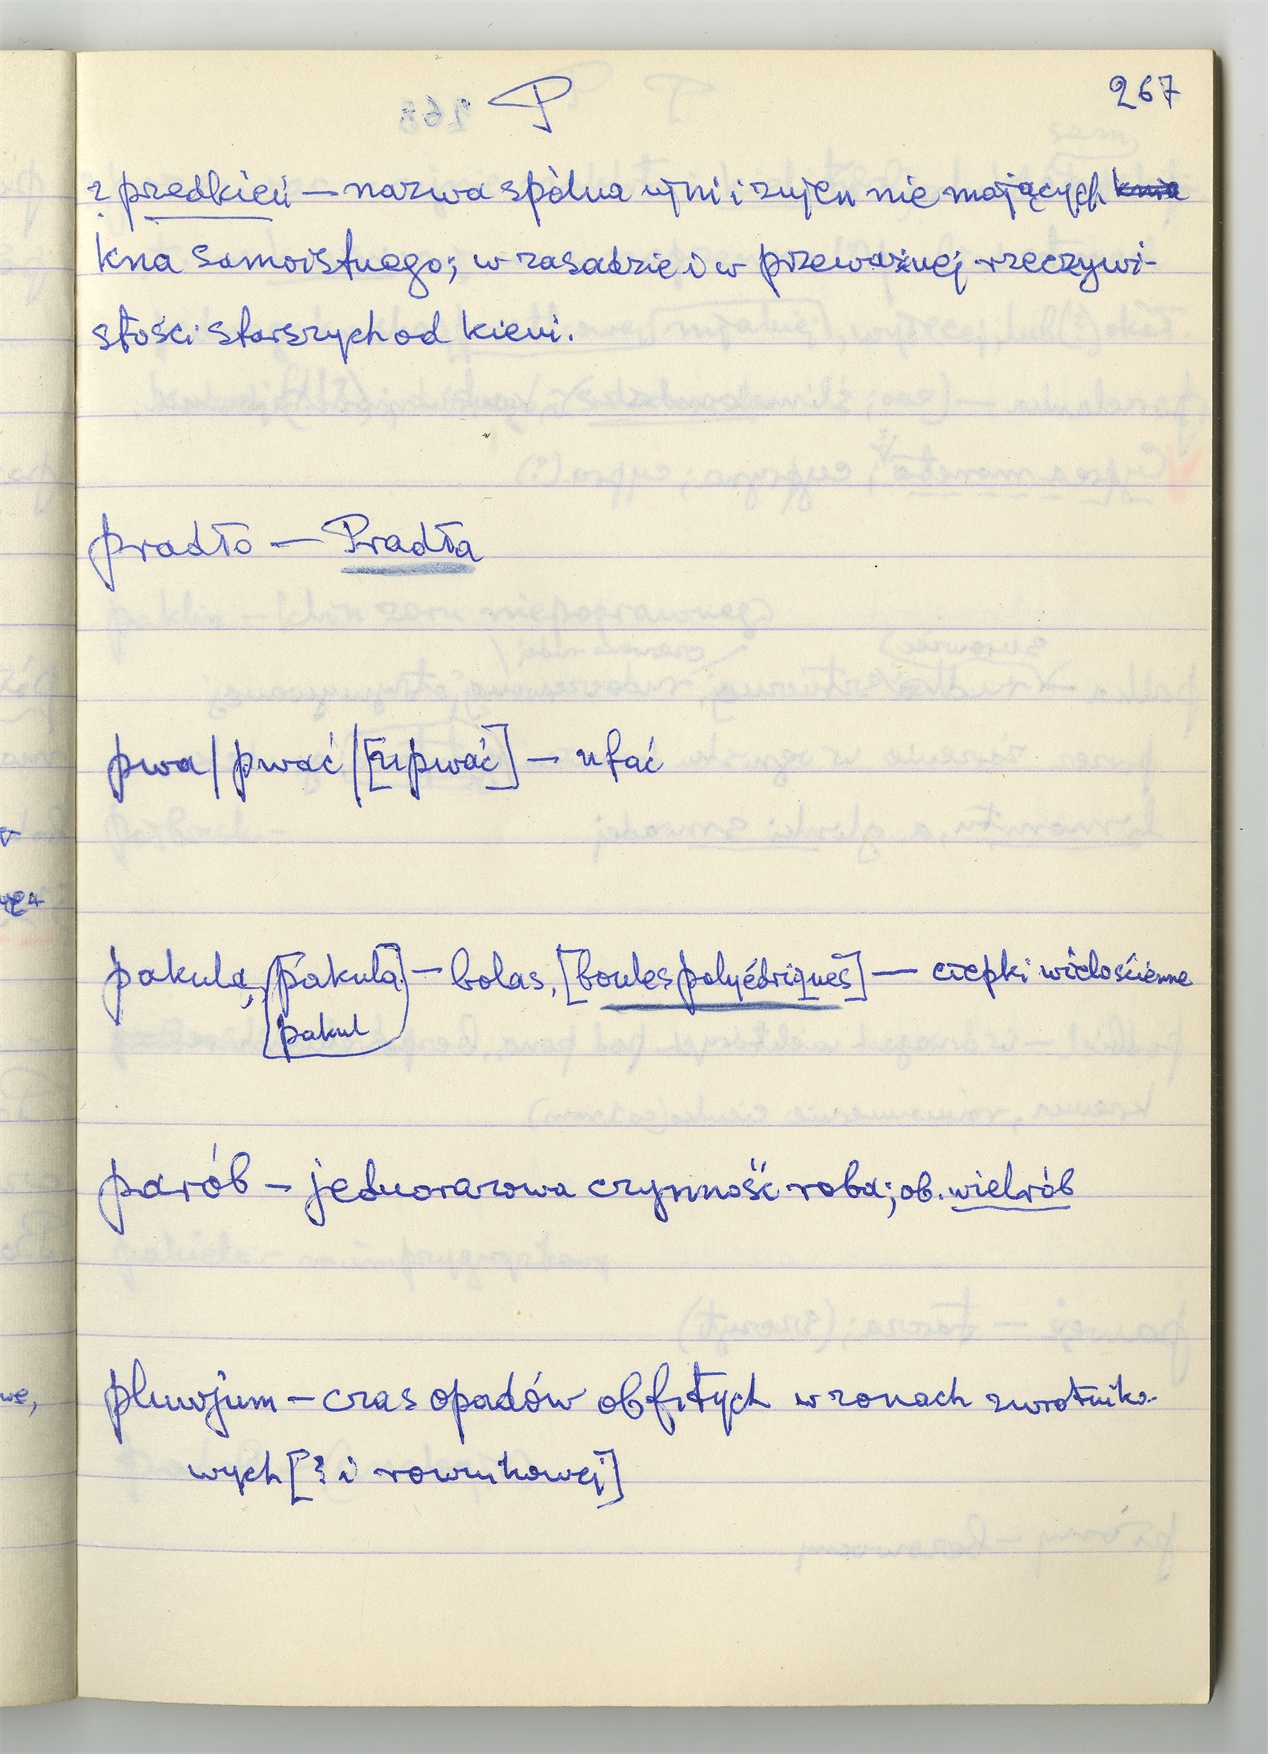 P
267
z przedkień — nazwa spólna ujni i zujen nie mających
kna samoistnego; w zasadzie i w przeważnej rzeczywi-
stości starszych od kieni.
pradło — Pradła
pwa / pwać / [upwać] — ufać
pakula, [pakula] — bolas, [boules polyédriques] — ciepki wielościenne
pakul
parób — jednorazowa czynność roba; ob. wielrób
pluwjum — czas opadów obfitych w zonach zwrotniko-
wych [? i rownikowej]